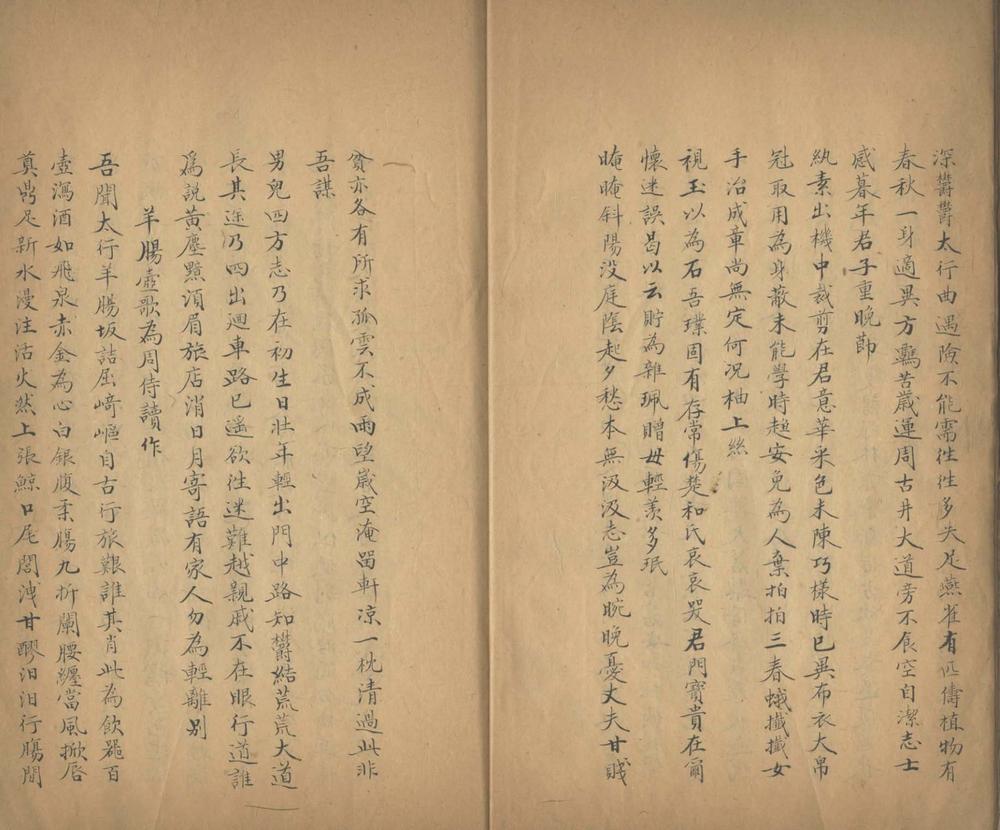 深鬱鬱太行曲遇險不能需往往多失足燕雀有匹儔植物有
春秋一身適異方羈苦歲連周古井大道旁不食空自潔志士
感暮年君子重晚節
紈素出機中裁剪在君意華采色未陳巧樣時已異布衣大帛
冠取用為身蔽未能學時趨安免為人棄拍拍三春蛾摻摻女
手治成章尚無定何況柚上絲
視玉以為石吾璞固有存常傷楚和氏哀哀哭君門寶貴在爾
懷迷誤曷以云貯為雜珮贈毋輕羨多珉
晻晻斜陽沒庭陰起夕愁本無汲汲志豈為晼晚憂丈夫甘賤
貧亦各有所求孤雲不成雨望歲空淹留軒涼一枕清過此非
吾謀
男兒四方志乃在初生日壯年輕出門中路知鬱結荒荒大道
長其途乃四出迴車路已遙欲往迷難越親戚不在眼行道誰
為說黃塵黦湏眉旅店消日月寄語有家人勿為輕離別
羊腸壺歌為周侍讀作
吾聞太行羊腸坂詰屈崎嶇自古行旅艱誰其肖此為飲器百
壺瀉酒如飛泉赤金為心白銀腹柔腸九折闌腰纏當風掀唇
奠鼎足新水漫注活火然上張鯨口尾閭洩甘醪汩汩行腸間